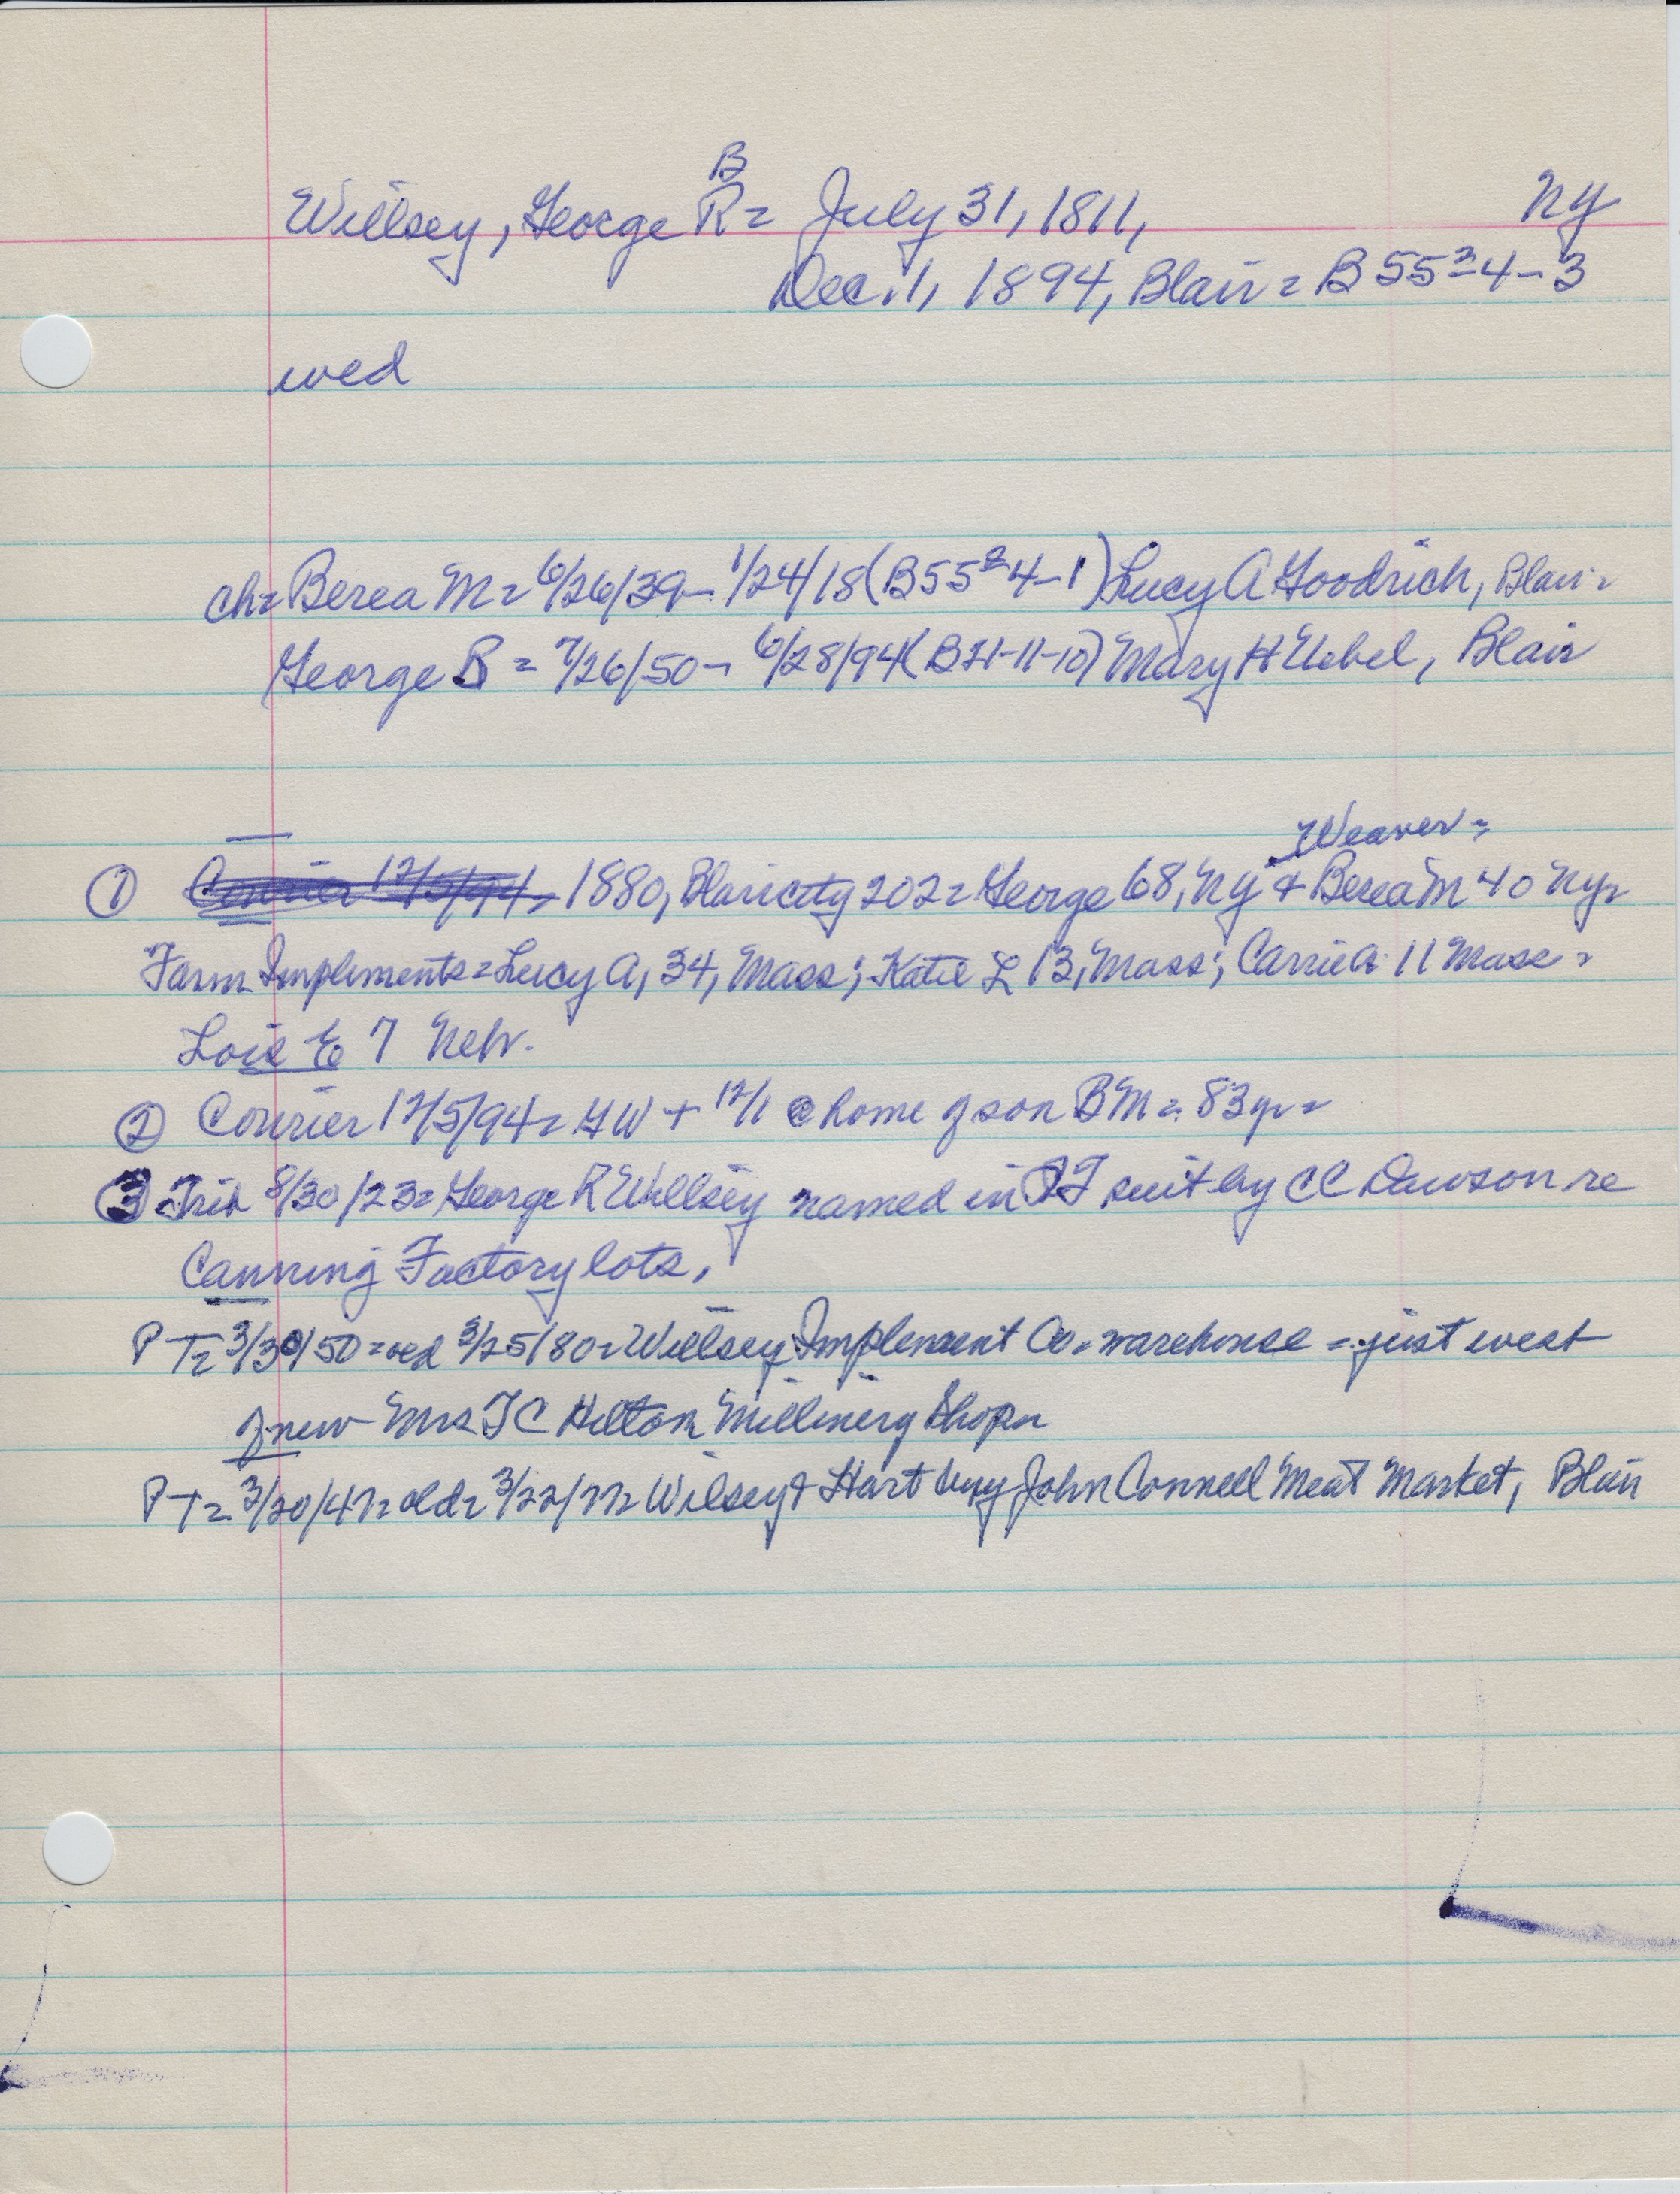 B
Willsey, George R = July 31, 1811, NY
Dec. 1, 1894, Blair = B 55 2 4-3
wed
ch = Berea M = 6/26/39 - 1/24/18 (B55 2 4-1) Lucy A Goodrich, Blair =
George B = 7/26/50 - 6/28/94 (B21-11-10) Mary H Uebel, Blair
Weaver =
① Courier 12/5/94 = 1880, Blair city 202 = George 68, NY & Berea M 40 NY =
Farm Implements = Lucy A, 34, Mass; Katie L 13, Mass; Carrie A 11 Mass =
Lois E 7 Nebr.
② Courier 12/5/94 = GW + 12/1 @ home of son BM = 83 yr =
③ Trib 8/30/23 = George R Willsey named in suit by CC Dawson re
Canning Factory lots.
PT = 3/30/50 = old 3/25/80 = Willsey Implement Co. warehouse = just west
of new Mrs TC Hilton Millinery Shop =
PT = 3/20/47 = old = 3/22/77 = Wilsey & Hart buy John Connell Meat Market, Blair